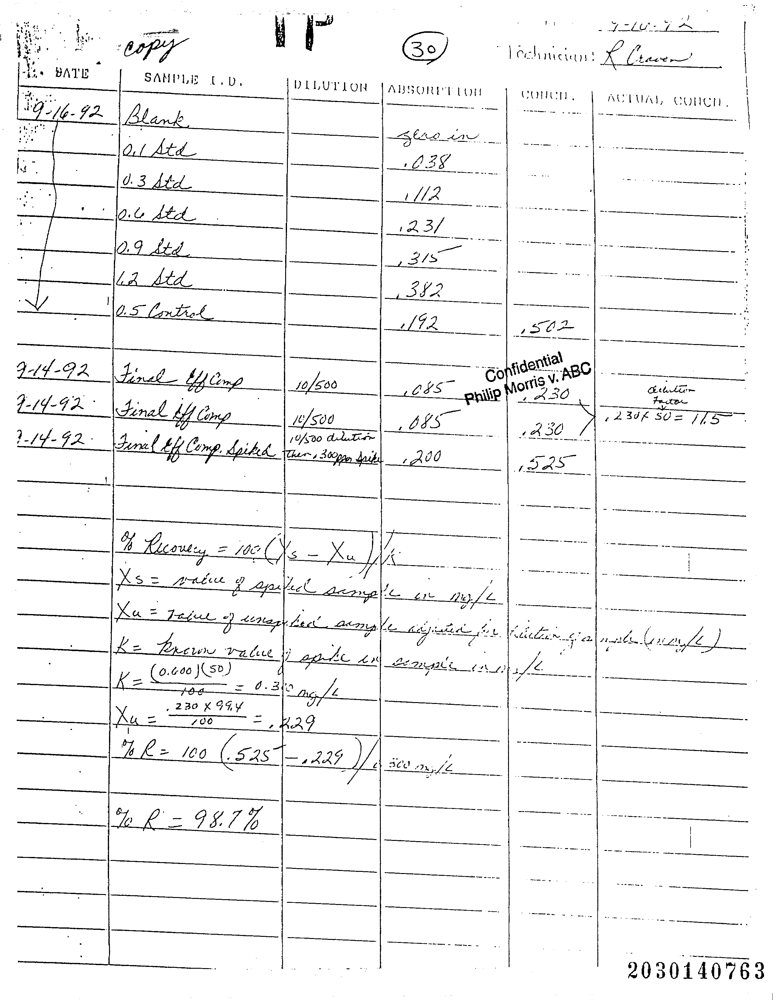 copy
TP
30
9-16-92
Technician: R Craven
DATE SAMPLE I.D. DILUTION ABSORPTION CONCN. ACTUAL CONCN.
9-16-92 Blank zero in
0.1 Std .038
0.3 Std .112
0.6 Std .231
0.9 Std .315
1.2 Std .382
0.5 Control .192 .502
Confidential
Philip Morris v. ABC
9-14-92 Final Eff Comp 10/500 .085 .230
dilution
factor
9-14-92 Final Eff Comp 10/500 .085 .230 .230 x 50 = 11.5
9-14-92 Final Eff Comp. Spiked 10/500 dilution then .300ppm Spike .200 .525
% Recovery = 100 (Xs - Xu)/K
Xs = value of spiked sample in mg/L
Xu = value of unspiked sample adjusted for dilution of sample (in mg/L)
K = known value of spike in sample in mg/L
K = (0.600)(50)/100 = 0.30 mg/L
Xu = .230 x 99.4/100 = .229
% R = 100 (.525 - .229)/.300 mg/L
% R = 98.7%
2030140763